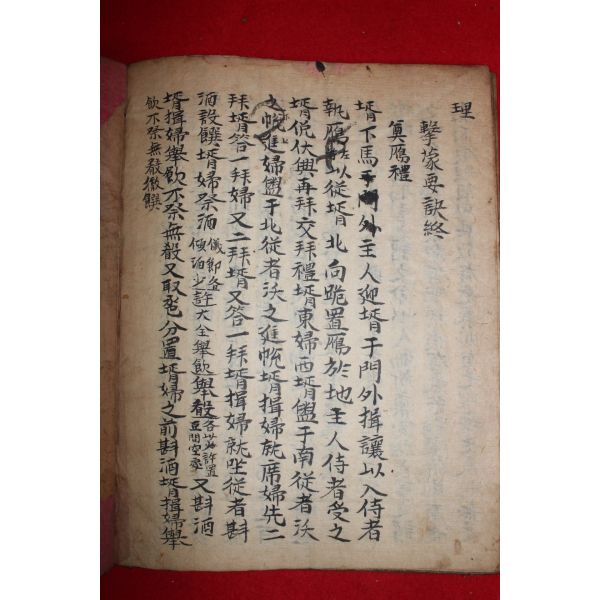 理
擊蒙要訣終
奠鴈禮
壻下馬于門外主人迎壻于門外揖讓以入侍者
執鴈左以從壻北向跪置鴈於地主人侍者受之
壻俛伏興再拜交拜禮壻東婦西壻盥于南從者沃
之帨進婦盥于北從者沃之進帨壻揖婦就席婦先二
拜壻答一拜婦又二拜壻又答一拜壻揖婦就坐從者斟
酒設饌壻婦祭酒儀節盞傾酒少許大全擧飮擧殽各少許置豆間空處又斟酒
壻揖婦擧飮不祭無殽又取巹分置壻婦之前斟酒壻揖婦擧
飮不祭無殽徹饌